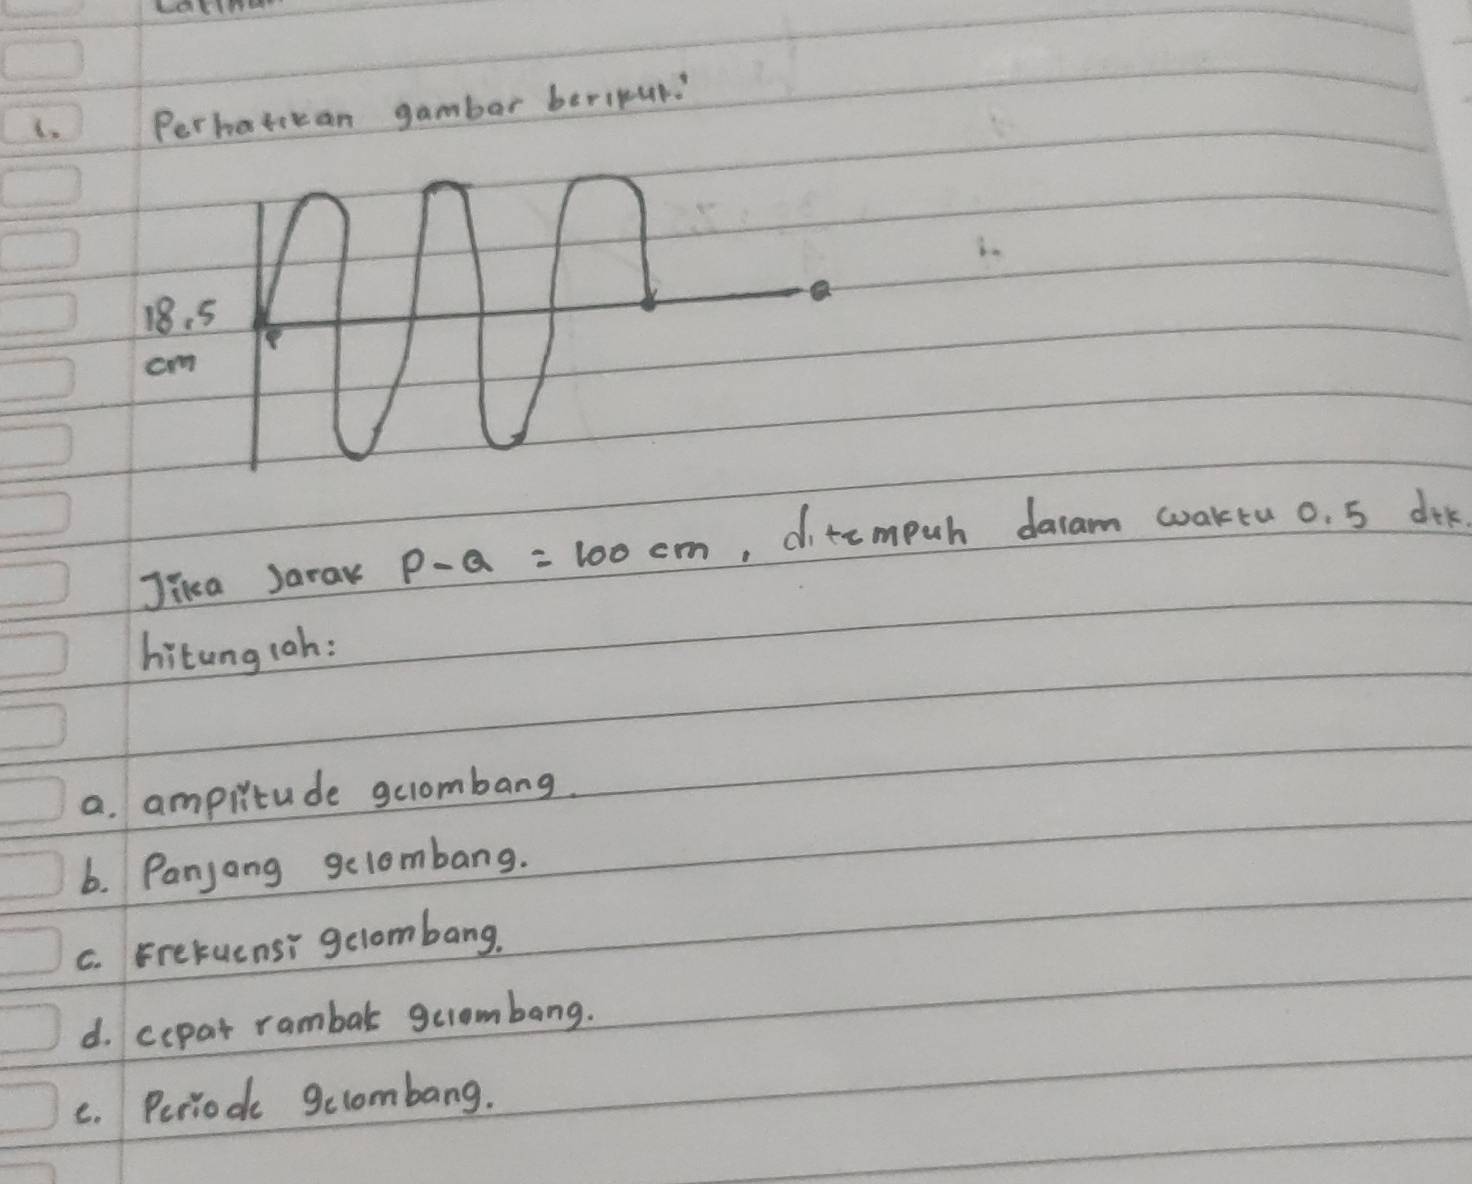 Latihan
1. Perhatikan gambar berikut:
18,5
cm
P
Q
Jika Jarak P-Q = 100 cm, ditempuh dalam waktu 0.5 dtk.
hitunglah:
a. amplitude gelombang.
b. Panjang gelombang.
c. Frekuensi gelombang.
d. cepat rambat gelombang.
e. Periode gelombang.